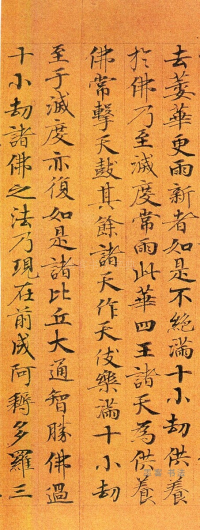 去萎華更雨新者如是不絕滿十小劫供養
於佛乃至滅度常雨此華四王諸天為供養
佛常擊天鼓其餘諸天作天伎樂滿十小劫
至于滅度亦復如是諸比丘大通智勝佛過
十小劫諸佛之法乃現在前成阿耨多羅三